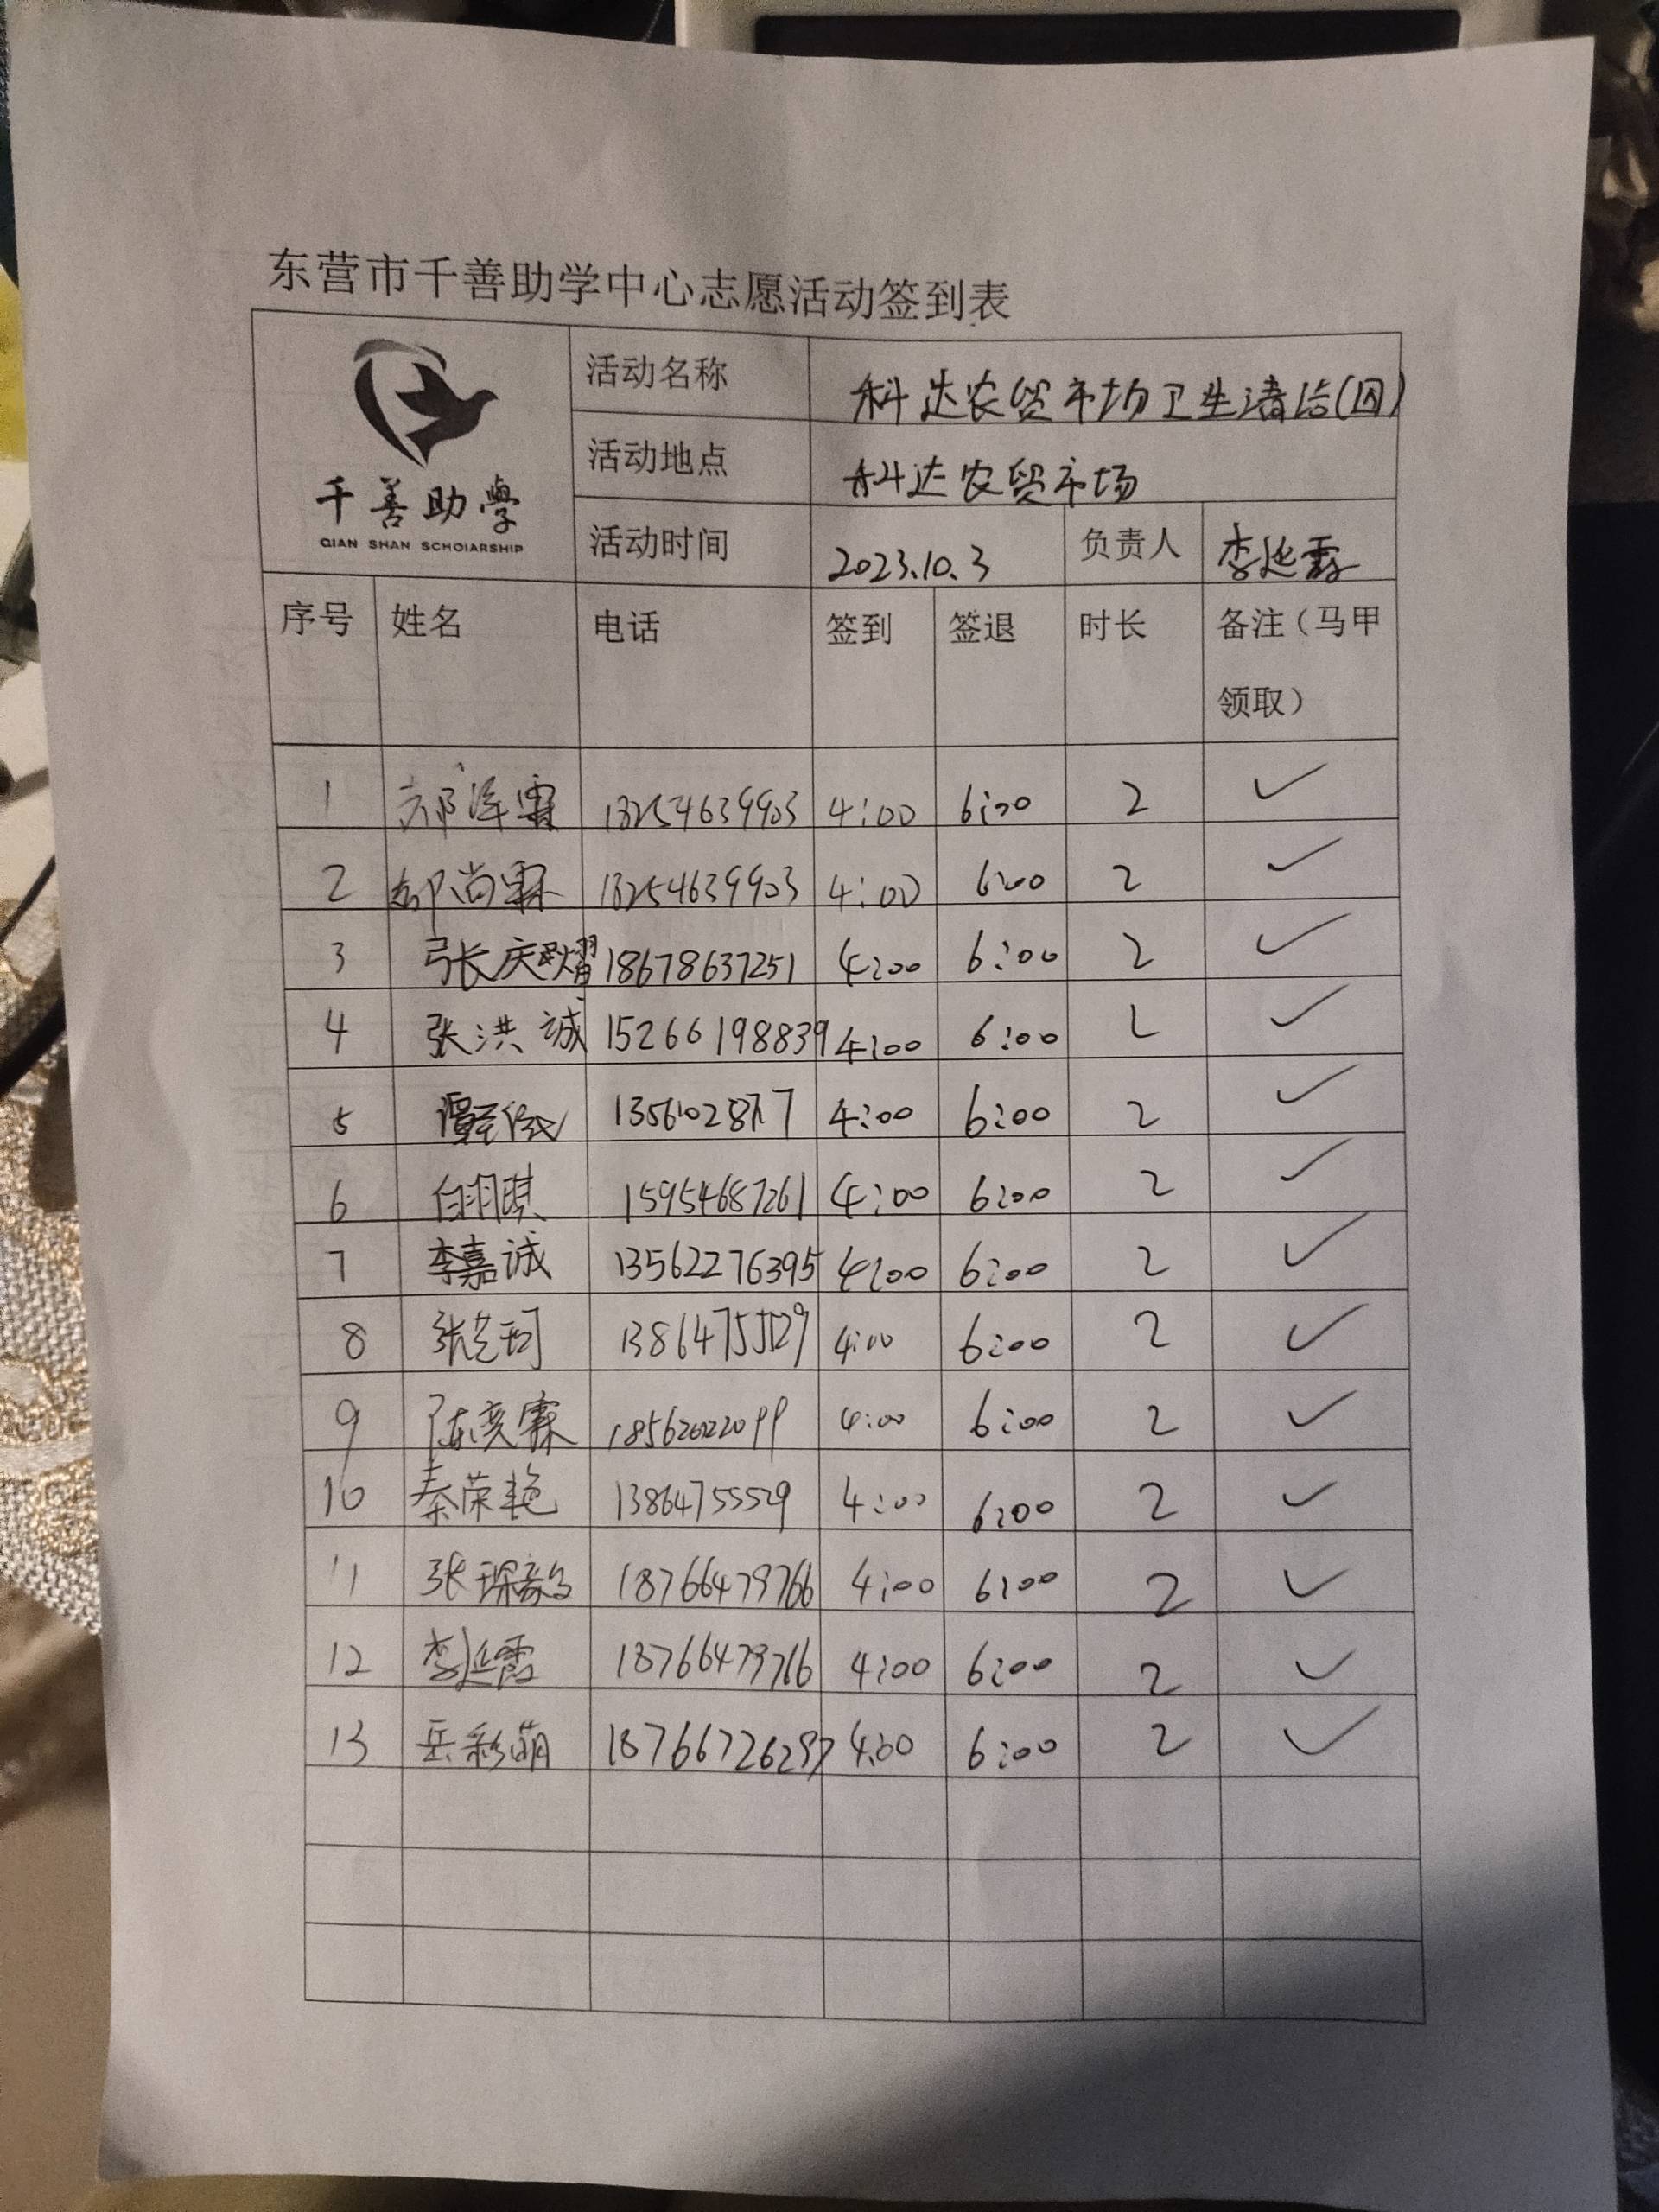 东营市千善助学中心志愿活动签到表
千善助學
QIAN SHAN SCHOIARSHIP
活动名称 科达农贸市场卫生清洁(四)
活动地点 科达农贸市场
活动时间 2023.10.3 负责人 李延霞
序号 姓名 电话 签到 签退 时长 备注（马甲
领取）
1 13254639903 4:00 6:00 2 ✓
2 13254639903 4:00 6:00 2 ✓
3 张庆熠 18678637251 4:00 6:00 2 ✓
4 张洪誠 15266198839 4:00 6:00 2 ✓
5 4:00 6:00 2 ✓
6 15954687261 4:00 6:00 2 ✓
7 李嘉诚 13562276395 4:00 6:00 2 ✓
8 张艺珂 13864755529 4:00 6:00 2 ✓
9 陈奕霖 18562022099 4:00 6:00 2 ✓
10 秦荣艳 13864755529 4:00 6:00 2 ✓
11 张琛 18766479766 4:00 6:00 2 ✓
12 李延霞 18766479766 4:00 6:00 2 ✓
13 岳彩萌 18766726297 4:00 6:00 2 ✓